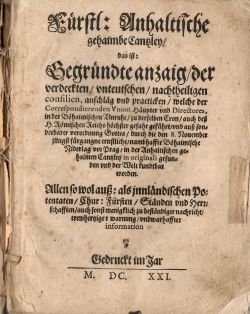 Fürstl: Anhaltische
gehaimbe Cantzley/
das ist:
Gegründte anzaig/ der
verdeckten/ vnteutschen/ nachtheiligen
consilien, anschläg vnd practicken/ welche der
Correspondierenden Vnion Häupter vnd Directores,
in der Böhaimischen Vnruhe/ zu derselben Cron/ auch deß
H. Römischen Reichs höchster gefahr geführt/ vnd auß son-
derbarer verordnung Gottes/ durch die den 8. Nouember
jüngst fürgangne ernstliche/ namhhaffte Böhaimische
Niderlag vor Prag/ in der Anhaltischen ge-
haimen Cantzley in originali gefun-
den vnd der Welt kundtbar
worden.
Allen so wol auß: als jnnländischen Po-
tentaten/ Chur: Fürsten/ Ständen vnd Herr-
schafften/ auch sonst menigklich zu beständiger nachricht/
trewhertziger warnung/ vnd warhaffter
information
Gedruckt im Jar
M. DC. XXI.